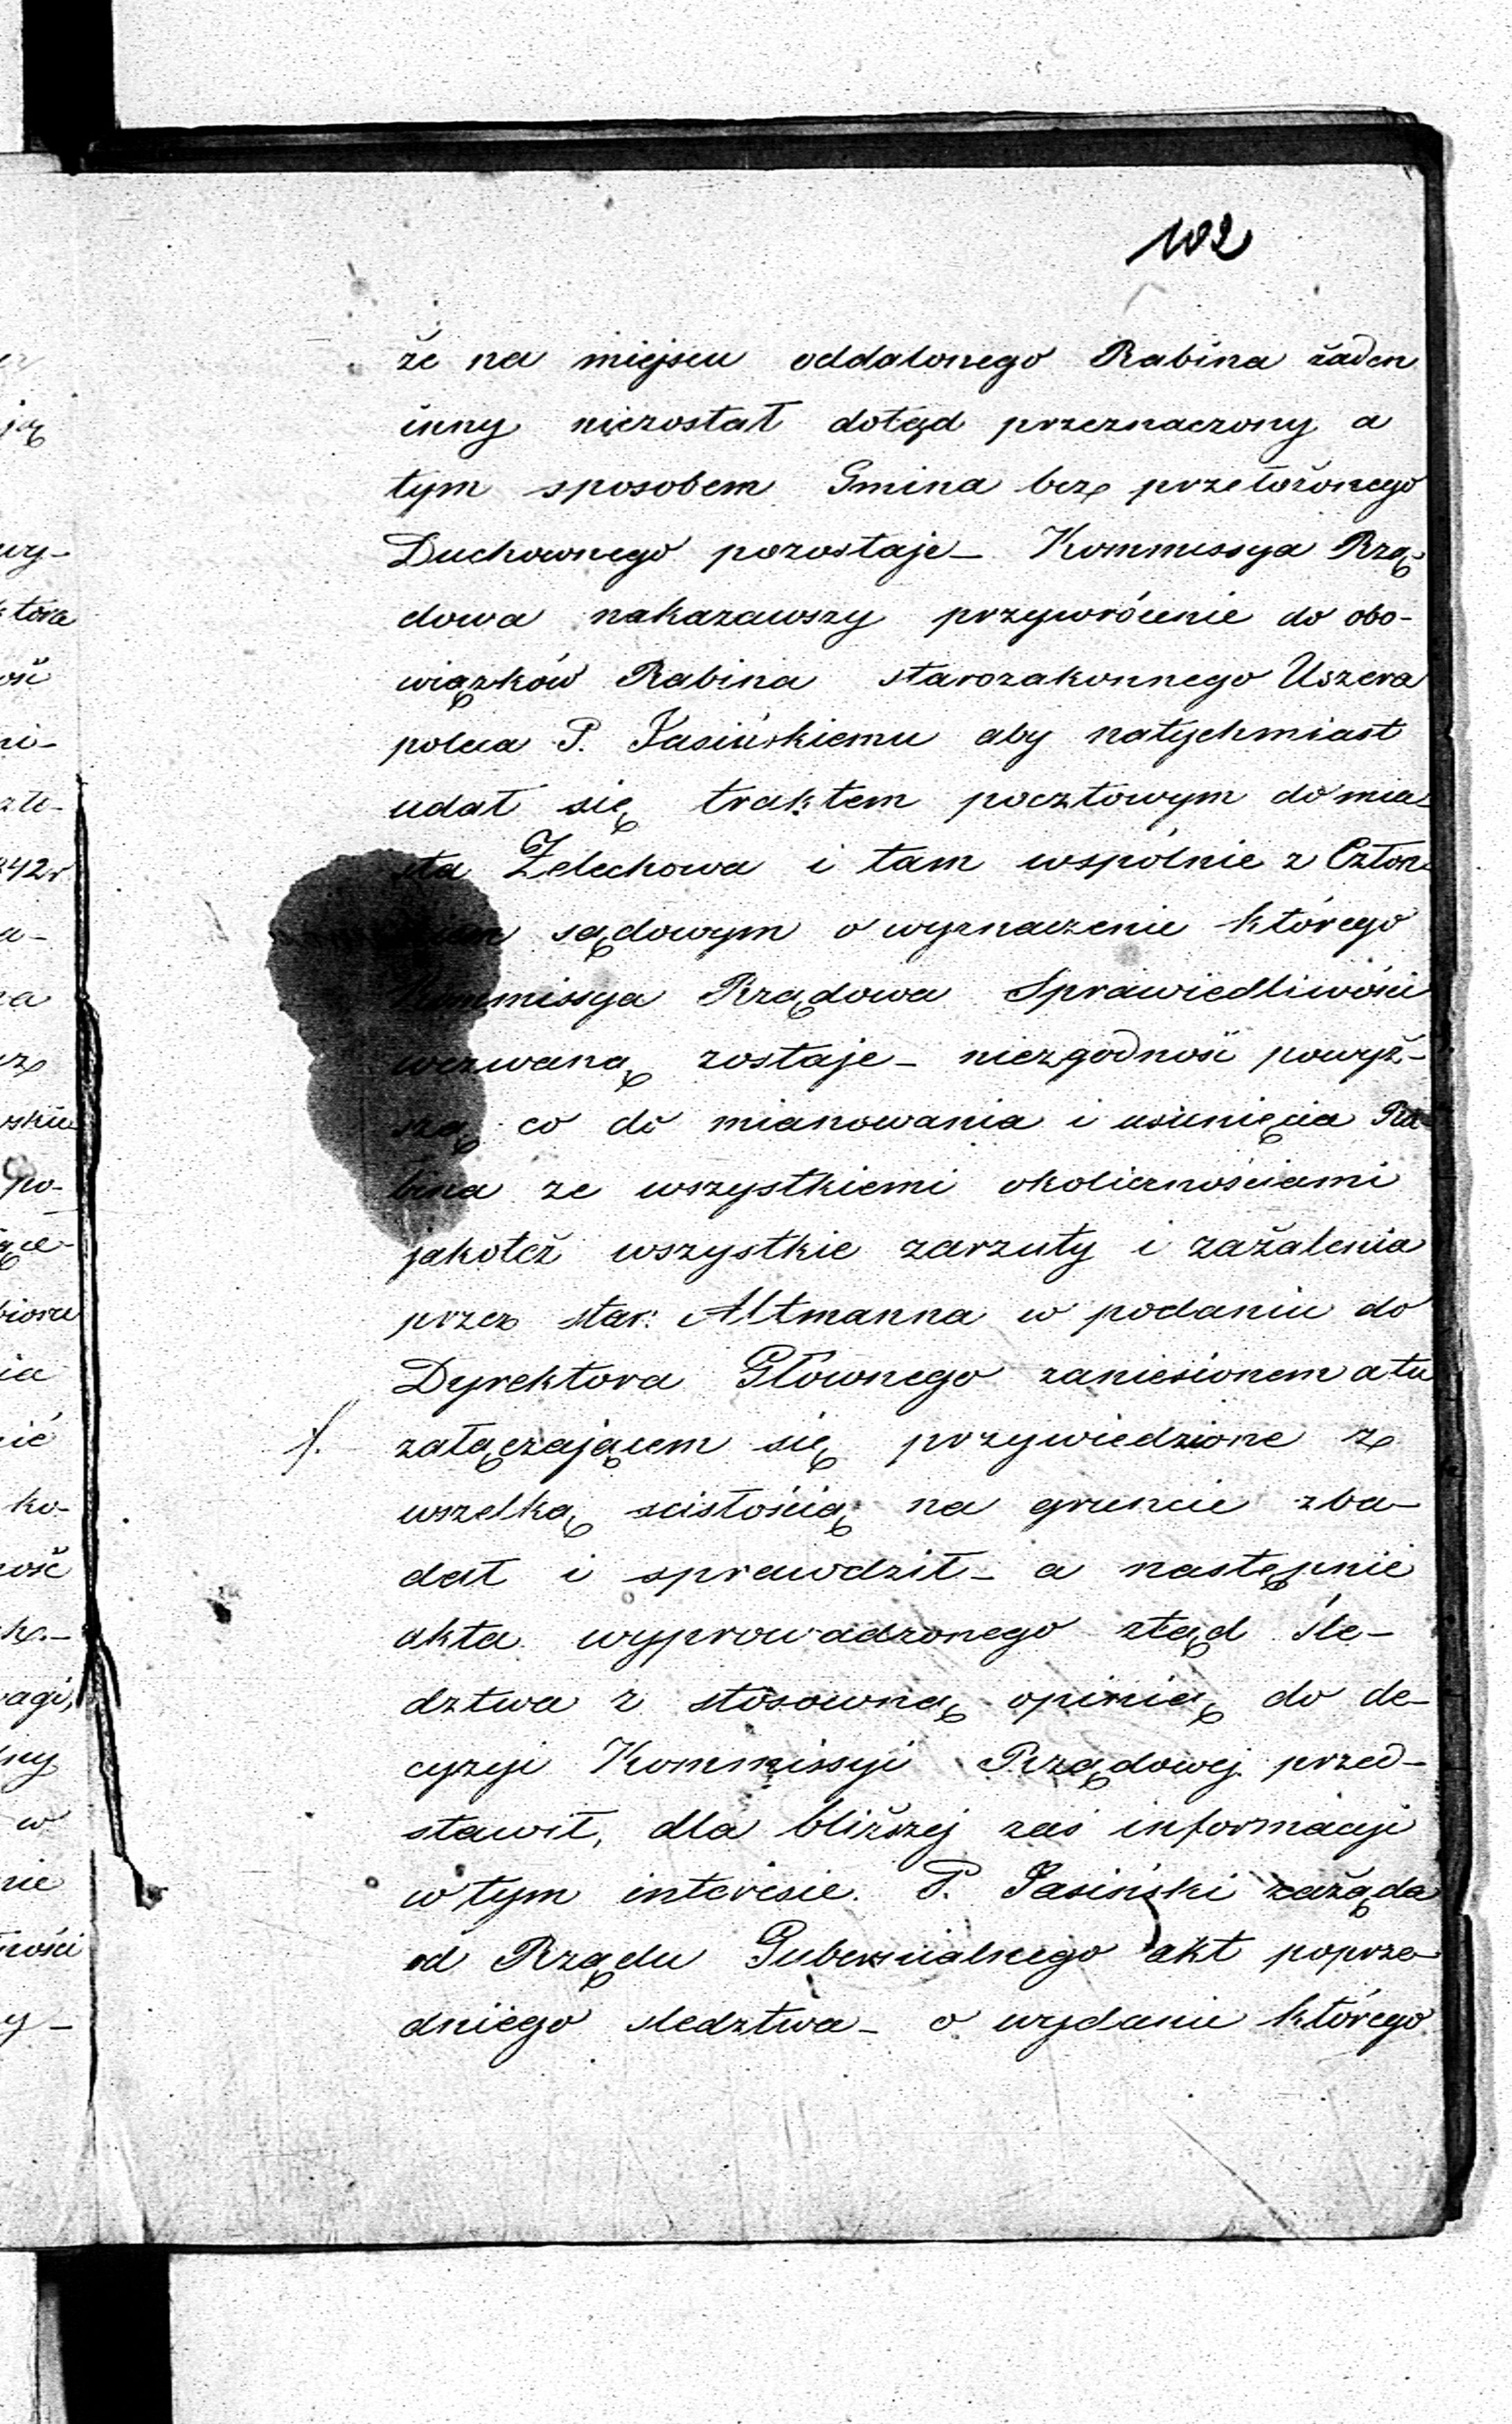 102
że na miejscu oddalonego Rabina żaden
inny niezostał dotąd przeznaczony a
tym sposobem Gmina bez przełożonego
Duchownego pozostaje – Kommissya Rzą-
dowa nakazawszy przywrócenie do obo-
wiązków Rabina starozakonnego Uszera
poleca P. Jasińskiemu aby natychmiast
udał się traktem pocztowym do mia-
sta Żelechowa i tam wspólnie z Człon-
kiem sądowym o wyznaczenie którego
Kommissya Rządowa Sprawiedliwości
wezwaną zostaje – niezgodność powyż-
szą co do mianowania i usunięcia Ra-
bina ze wszystkiemi okolicznościami
jakoteż wszystkie zarzuty i zażalenia
przez star: Altmanna w podaniu do
Dyrektora Głównego zaniesionem a tu
/. załączającem się przywiedzione z
wszelką scisłością na gruncie zba-
dał i sprawdził – a następnie
akta wyprowadzonego ztąd śle-
dztwa z stosowną opinią do de-
cyzyi Kommissyi Rządowej przed-
stawił, dla bliższej zaś informacyi
w tym interesie. P. Jasiński zażąda
od Rządu Gubernialnego akt poprze-
dniego sledztwa – o wydanie którego